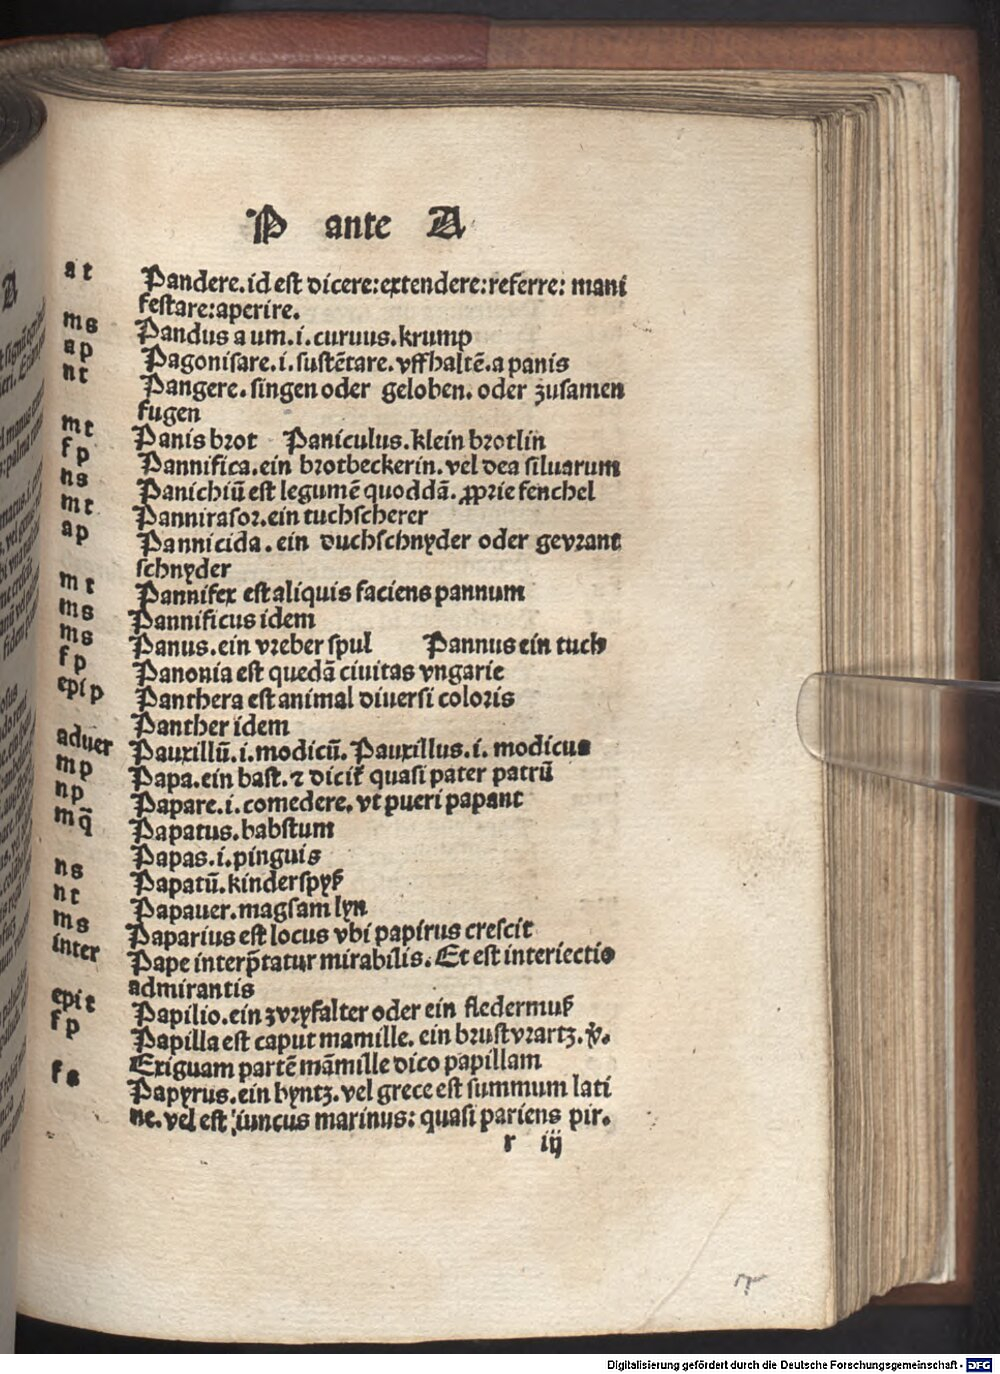 P ante A
at Pandere. id est dicere: extendere: referre: mani
festare: aperire.
ms Pandus a um. i. curuus. krump
ap Pagonisare. i. sustētare. vffhaltē. a panis
nt Pangere. singen oder geloben. oder zusamen
fugen
mt Panis brot Paniculus. klein brotlin
fp Pannifica. ein brotbeckerin. vel dea siluarum
ns Panichiū est legumē quoddā. ꝓprie fenchel
mt Pannirasor. ein tuchscherer
ap Pannicida. ein duchschnyder oder gevzant
schnyder
mt Pannifex est aliquis faciens pannum
ms Pannificus idem
ms Panus. ein vzeber spul Pannus ein tuch
fp Panonia est quedā ciuitas vngarie
epi p Panthera est animal diuersi coloris
Panther idem
aduer Pauxillū. i. modicū. Pauxillus. i. modicus
mp Papa. ein bast. ⁊ dicit̄ quasi pater patrū
np Papare. i. comedere. vt pueri papant
mq̄ Papatus. babstum
Papas. i. pinguis
ns Papatū. kinderspyß
nt Papauer. magsam lyn
ms Paparius est locus vbi papirus crescit
inter Pape interp̄tatur mirabilis. Et est interiectio
admirantis
epi t Papilio. ein zvzyfalter oder ein fledermuß
fp Papilla est caput mamille. ein brustvzartz. ꝟ.
Exiguam partē māmille dico papillam
fs Papyrus. ein byntz. vel grece est summum lati
ne. vel est iuncus marinus: quasi pariens pir.
r iij
Digitalisierung gefördert durch die Deutsche Forschungsgemeinschaft - DFG